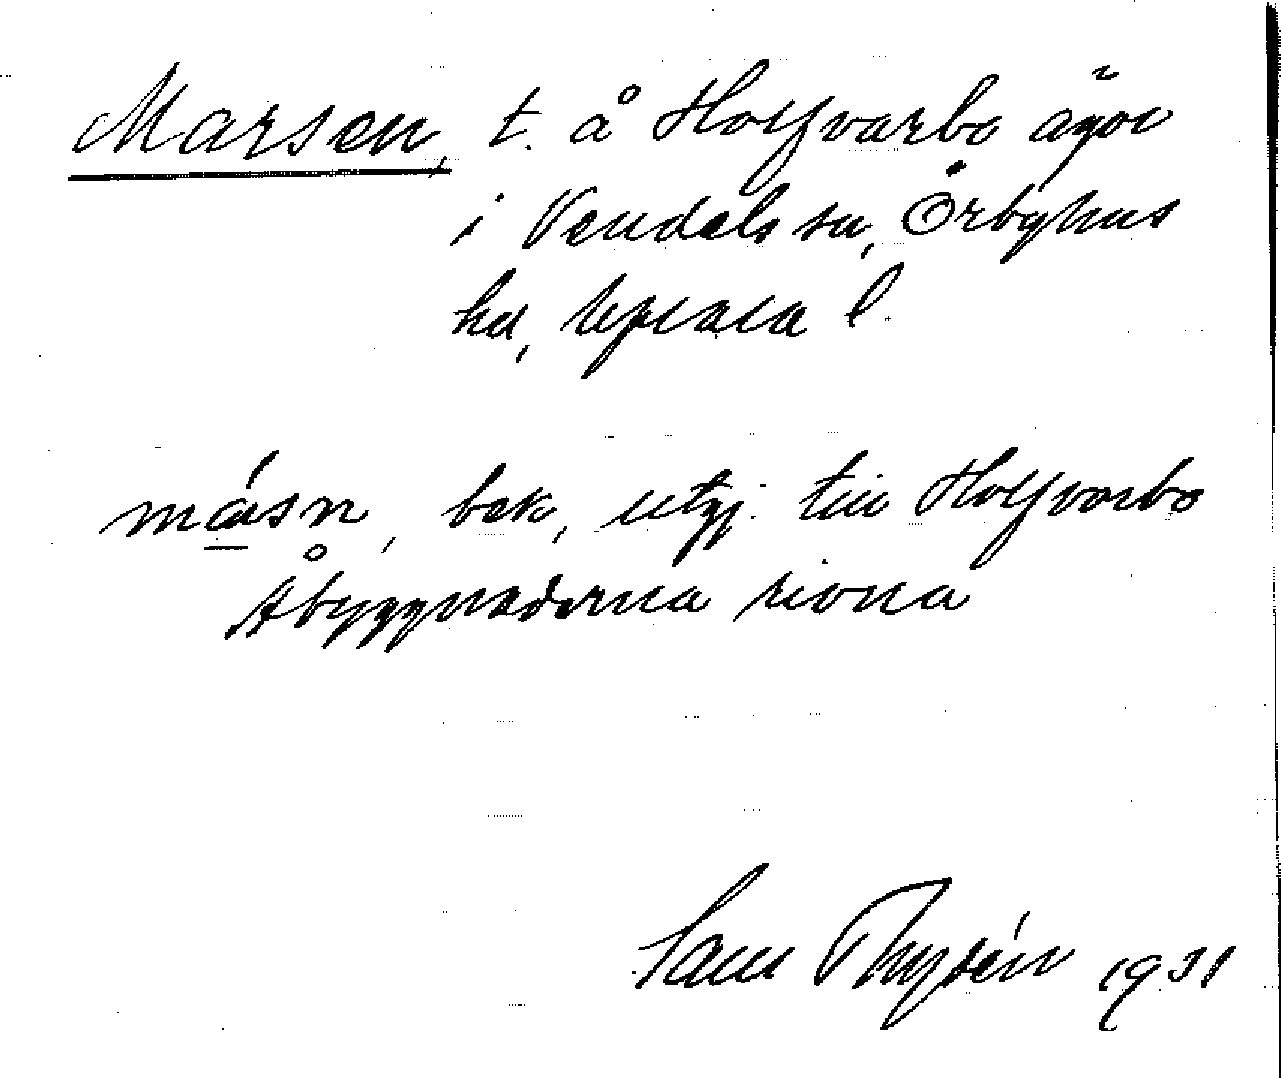 Marsen, t. å Holfvarbo ägor
i Vendels sn, Örbyhus
hd, Upsala l.
másn, bek, utgj. till Holfvarbo
Åbyggnaderna rivna
Sam Thysén 1931